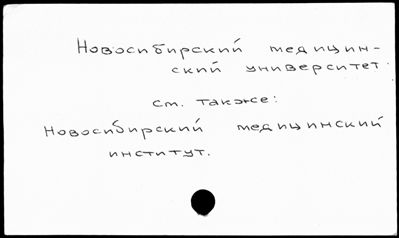 Новосибирский медицин-
ский университет.
см. также:
Новосибирский медицинский
институт.